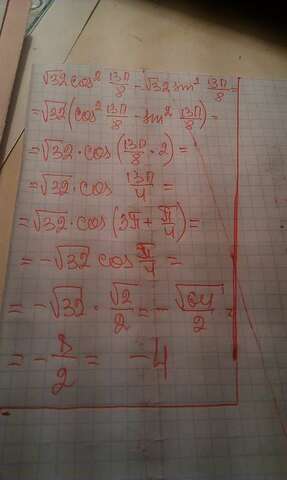 √32 cos² 13π/8 - √32 sin² 13π/8 =
= √32 (cos² 13π/8 - sin² 13π/8) =
= √32 · cos (13π/8 · 2) =
= √32 · cos 13π/4 =
= √32 · cos (3π + π/4) =
= - √32 cos π/4 =
= - √32 · √2/2 = - √64/2 =
= - 8/2 = - 4